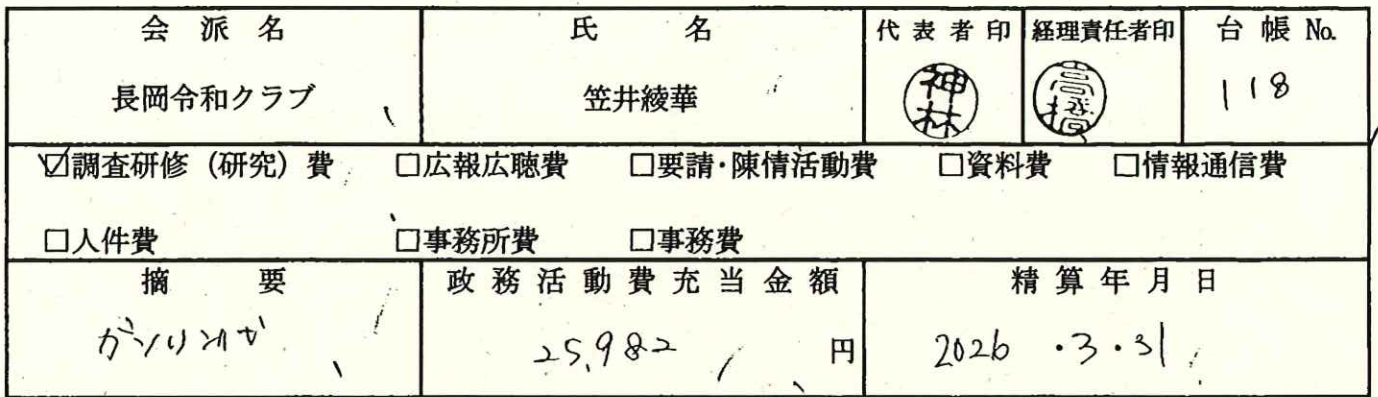 会派名 氏名 代表者印 経理責任者印 台帳No.
長岡令和クラブ 笠井綾華 神林 高橋 118
☑調査研修（研究）費 □広報広聴費 □要請・陳情活動費 □資料費 □情報通信費
□人件費 □事務所費 □事務費
摘要 政務活動費充当金額 精算年月日
ガソリン 25,982 円 2026・3・31